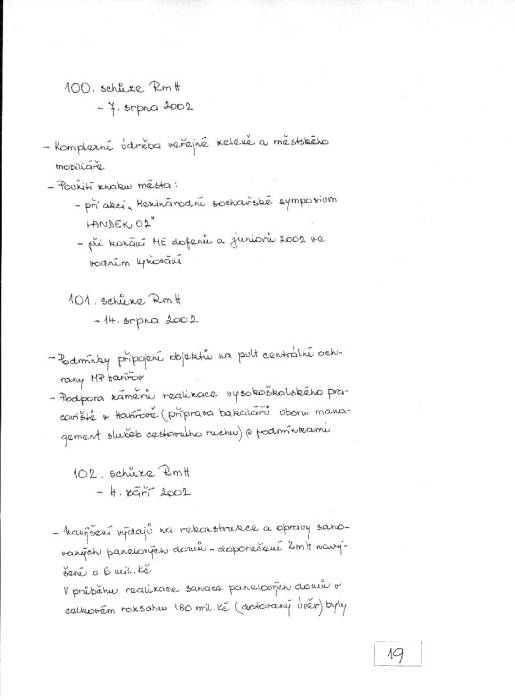 100. schůze RmH
- 7. srpna 2002
- Komplexní údržba veřejné zeleně a městského
mobiliáře
- Použití znaku města:
- při akci „Mezinárodní sochařské symposium
LANDEK 02"
- při konání ME dořenů a juniorů 2002 ve
vodním lyžování
101. schůze RmH
- 14. srpna 2002
- Podmínky připojení objektů na pult centrální och-
rany MP Havířov
- Podpora záměrů realizace vysokoškolského pra-
coviště v Havířově (příprava bakalářů oboru mana-
gement služeb cestovního ruchu) podmínkami
102. schůze RmH
- 4. září 2002
- Navýšení výdajů na rekonstrukce a opravy sano-
vaných panelových domů - doporučení ZmH navý-
šení o 6 mil. Kč
V průběhu realizace sanace panelových domů v
celkovém rozsahu 180 mil. Kč (dotovaný úvěr) byly
19